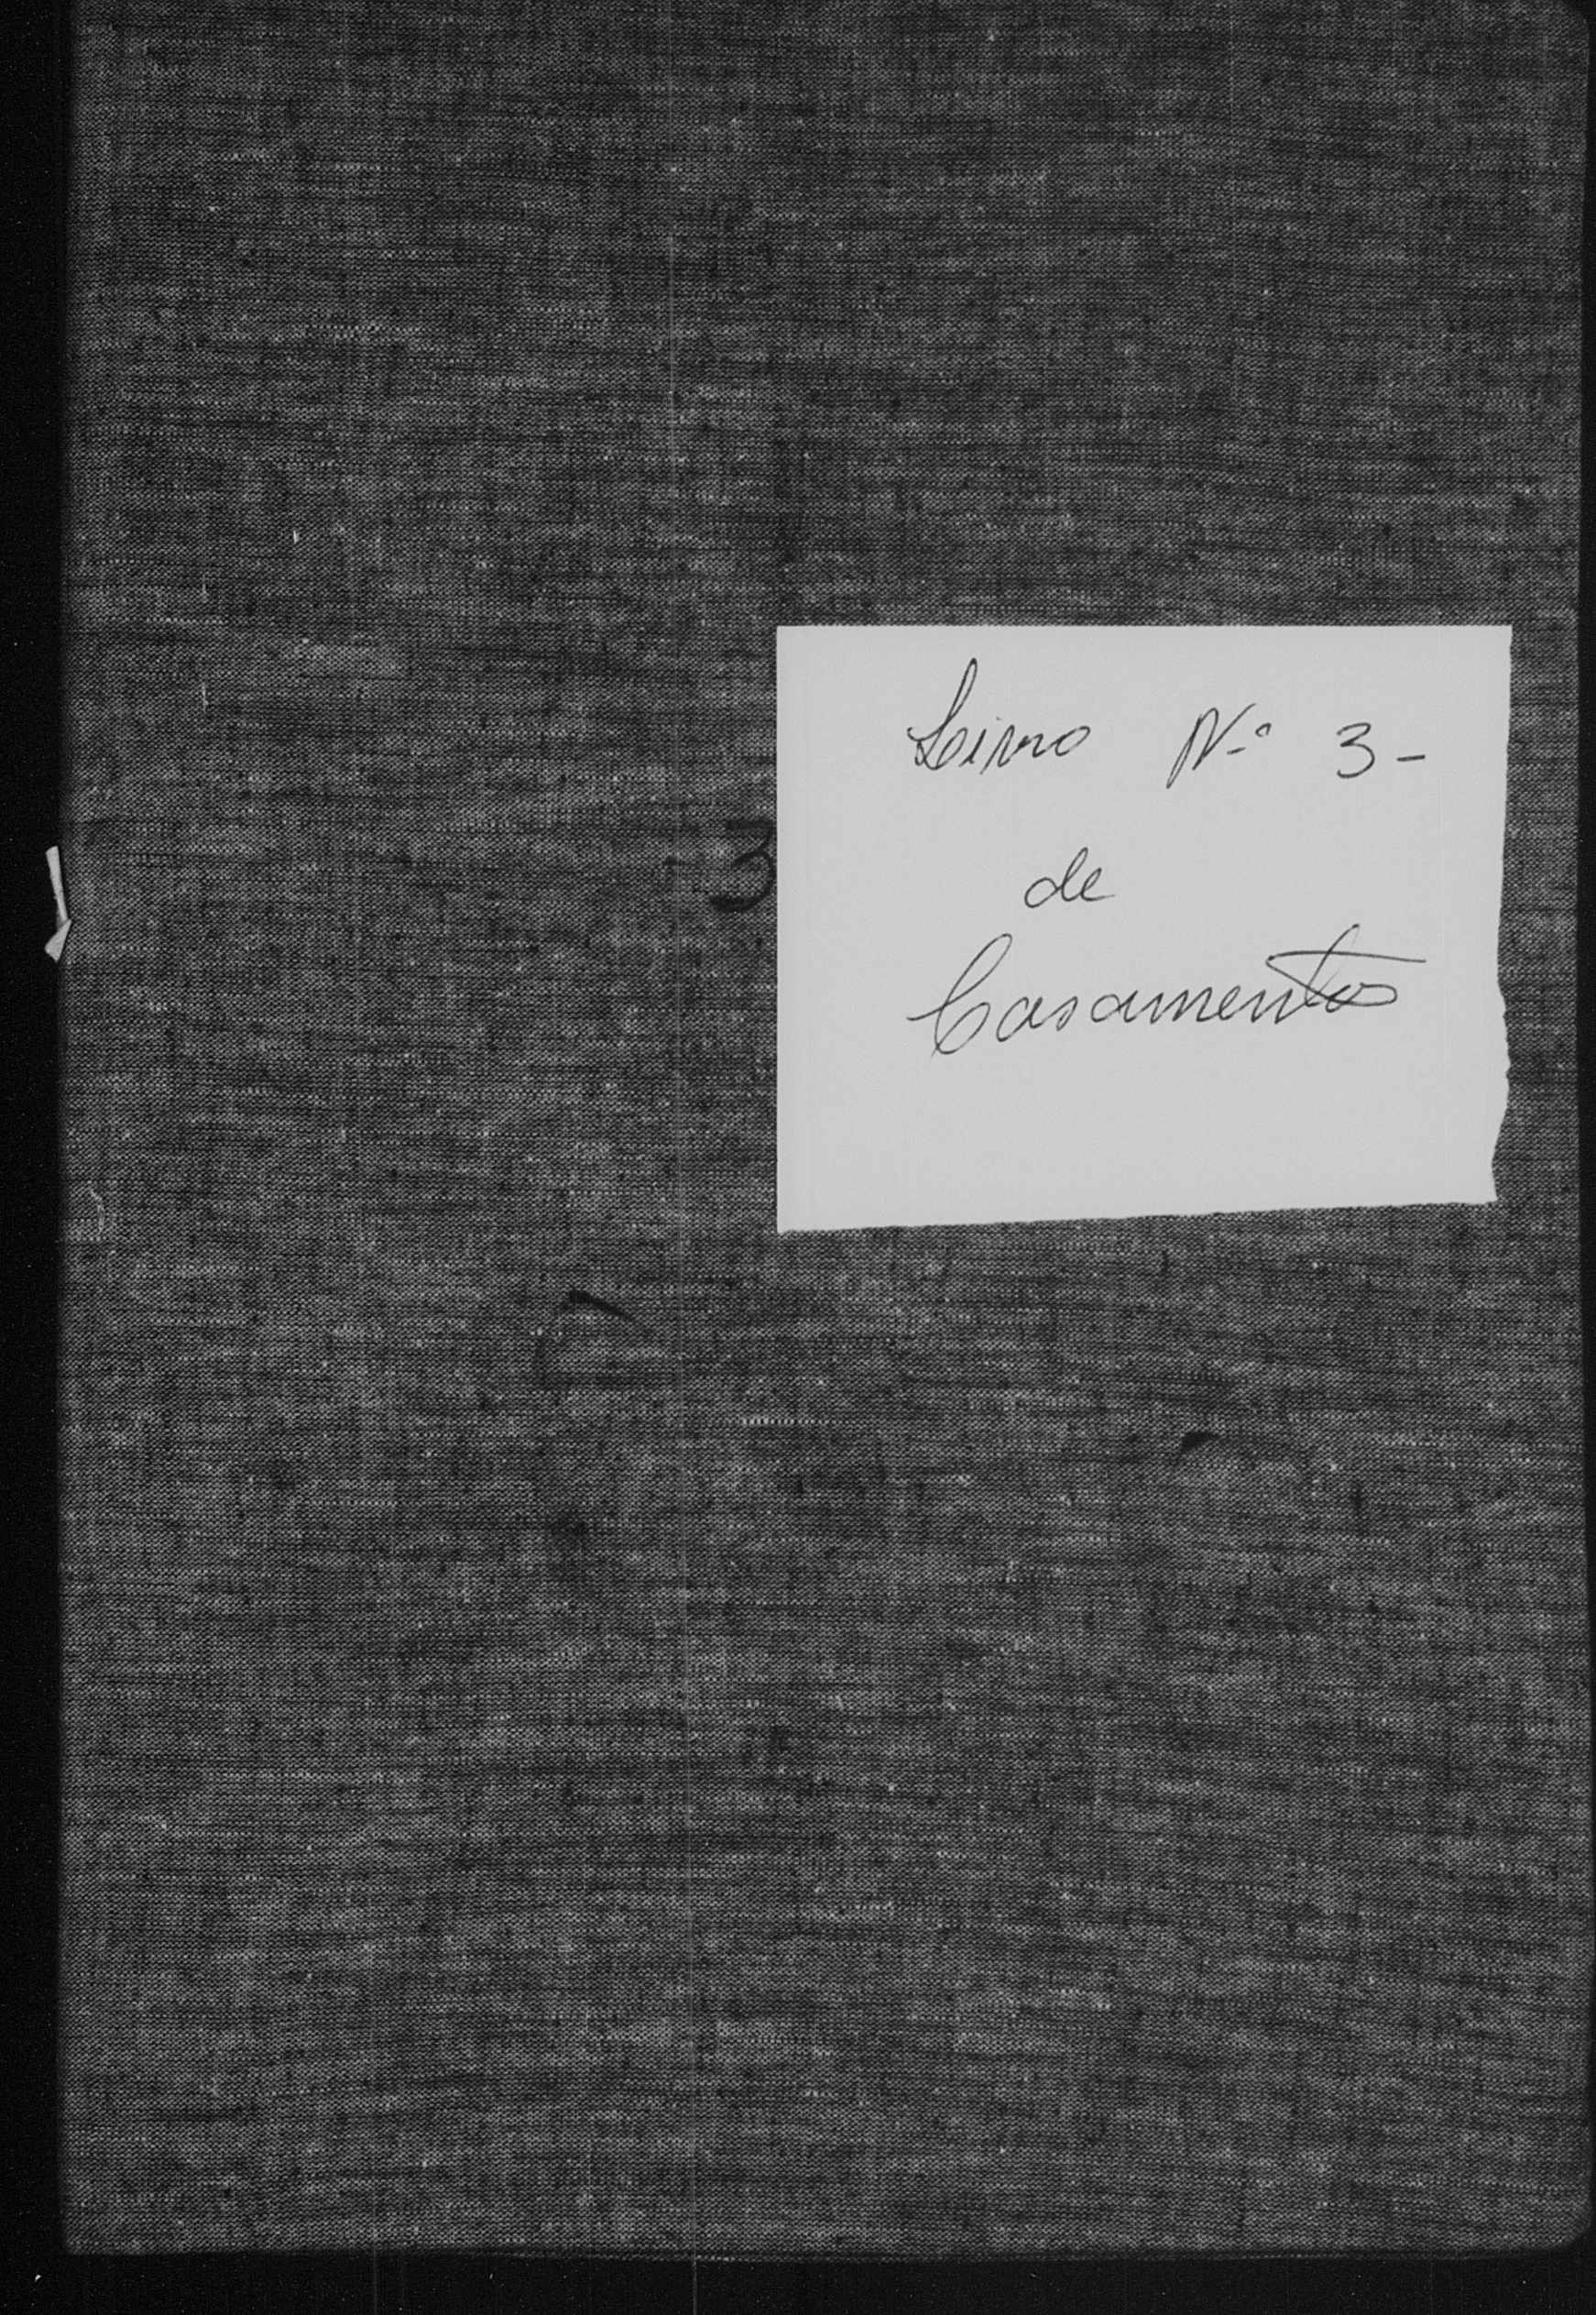 Livro N-º 3-
de
Casamentos
3